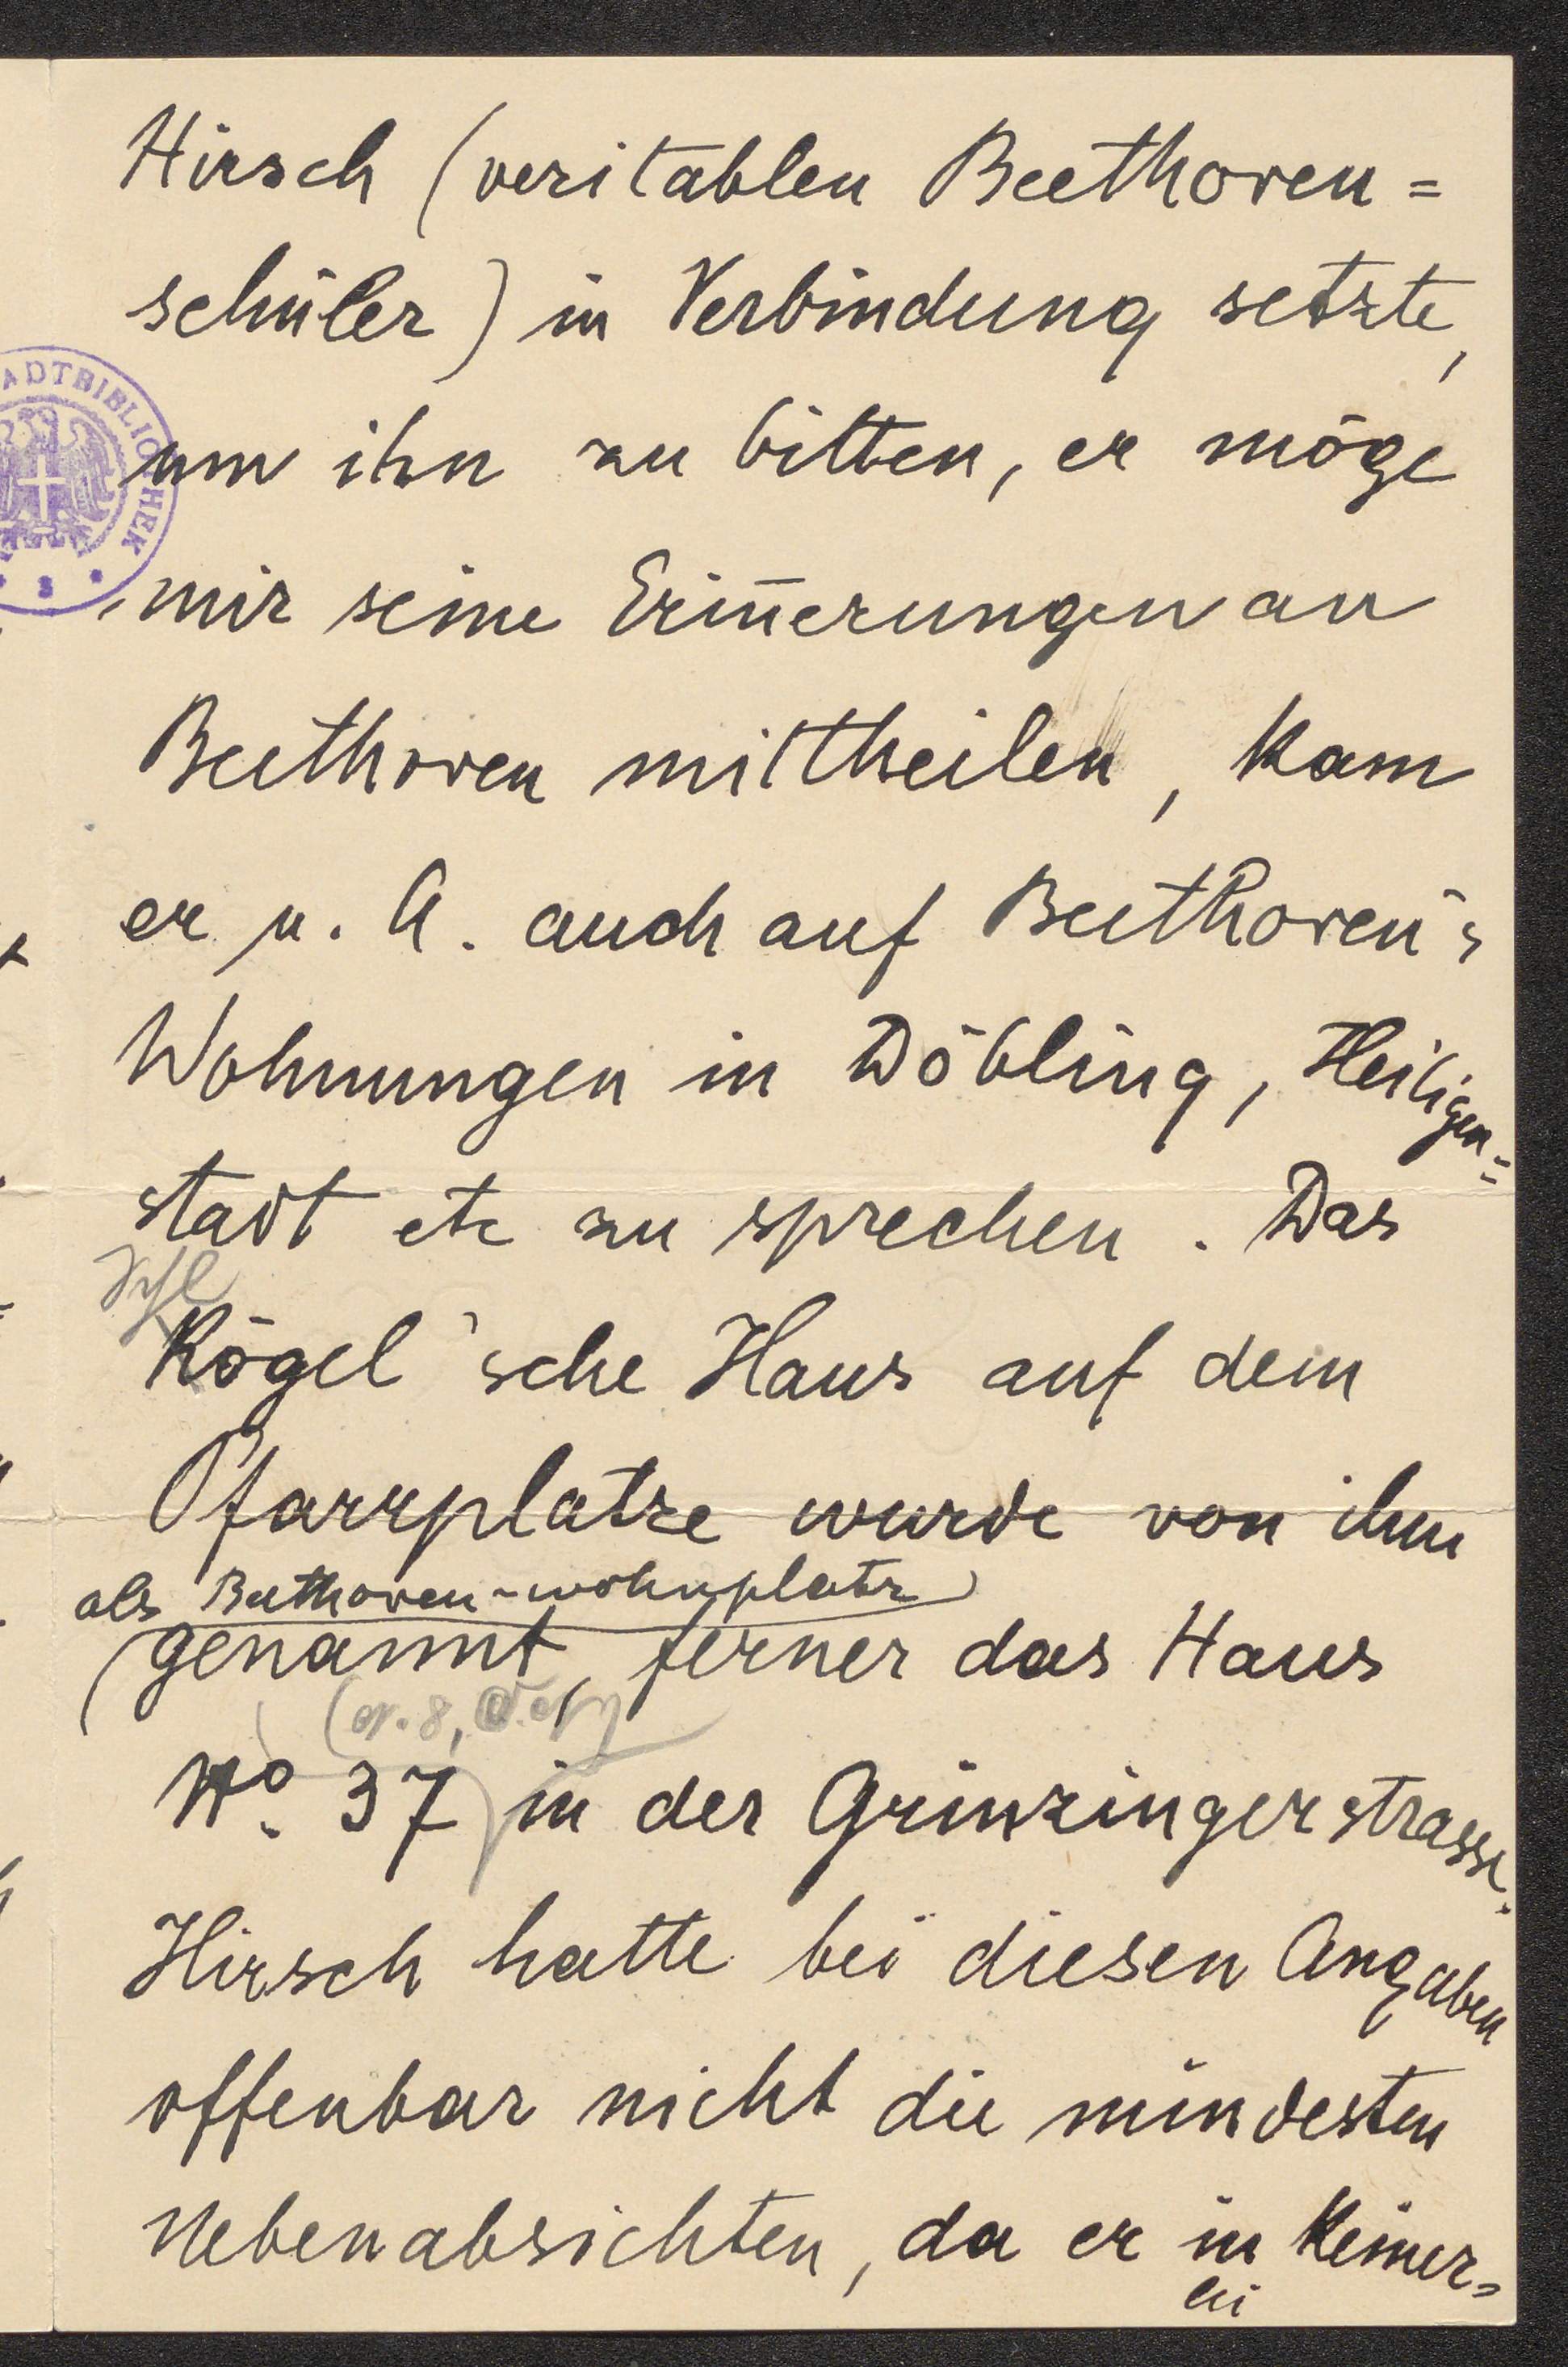 Hirsch (veritablen Beethoven=
schüler) in Verbindung setzte,
um ihn zu bitten, er möge
mir seine Erin̄erungen an
Beethoven mittheilen, kam
er u. A. auch auf Beethoven's
Wohnungen in Döbling, Heiligen=
stadt etc zu sprechen. Das
Kögel'sche Haus auf dem
Pfarrplatze wurde von ihm
als Beethoven-wohnplatz
genannt, ferner das Haus
No. 37 in der Grinzingerstrasse.
Hirsch hatte bei diesen Angaben
offenbar nicht die mindesten
Nebenabsichten, da er in keiner=
lei
ADTBIBLIOTHEK